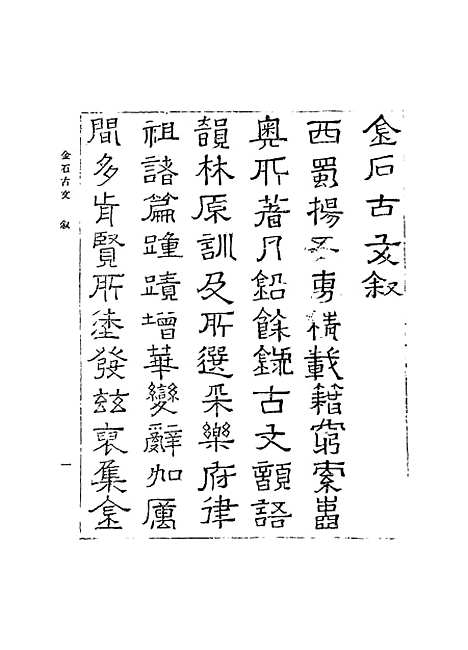 金石古文叙
西蜀揚子專精載籍窮索
奧所著丹鉛餘錄古文韻語
韻林原訓及所選采樂府律
祖諸篇踵蹟增華變辭加厲
間多昔賢所發玆裒集金
金石古文 叙 一